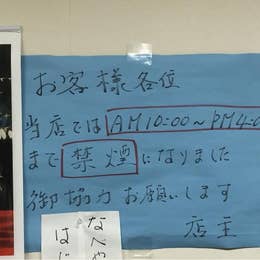 お客様各位
当店では AM10:00~PM4:0
まで 禁煙 になりました
御協力お願いします
店主
なべや
はじ